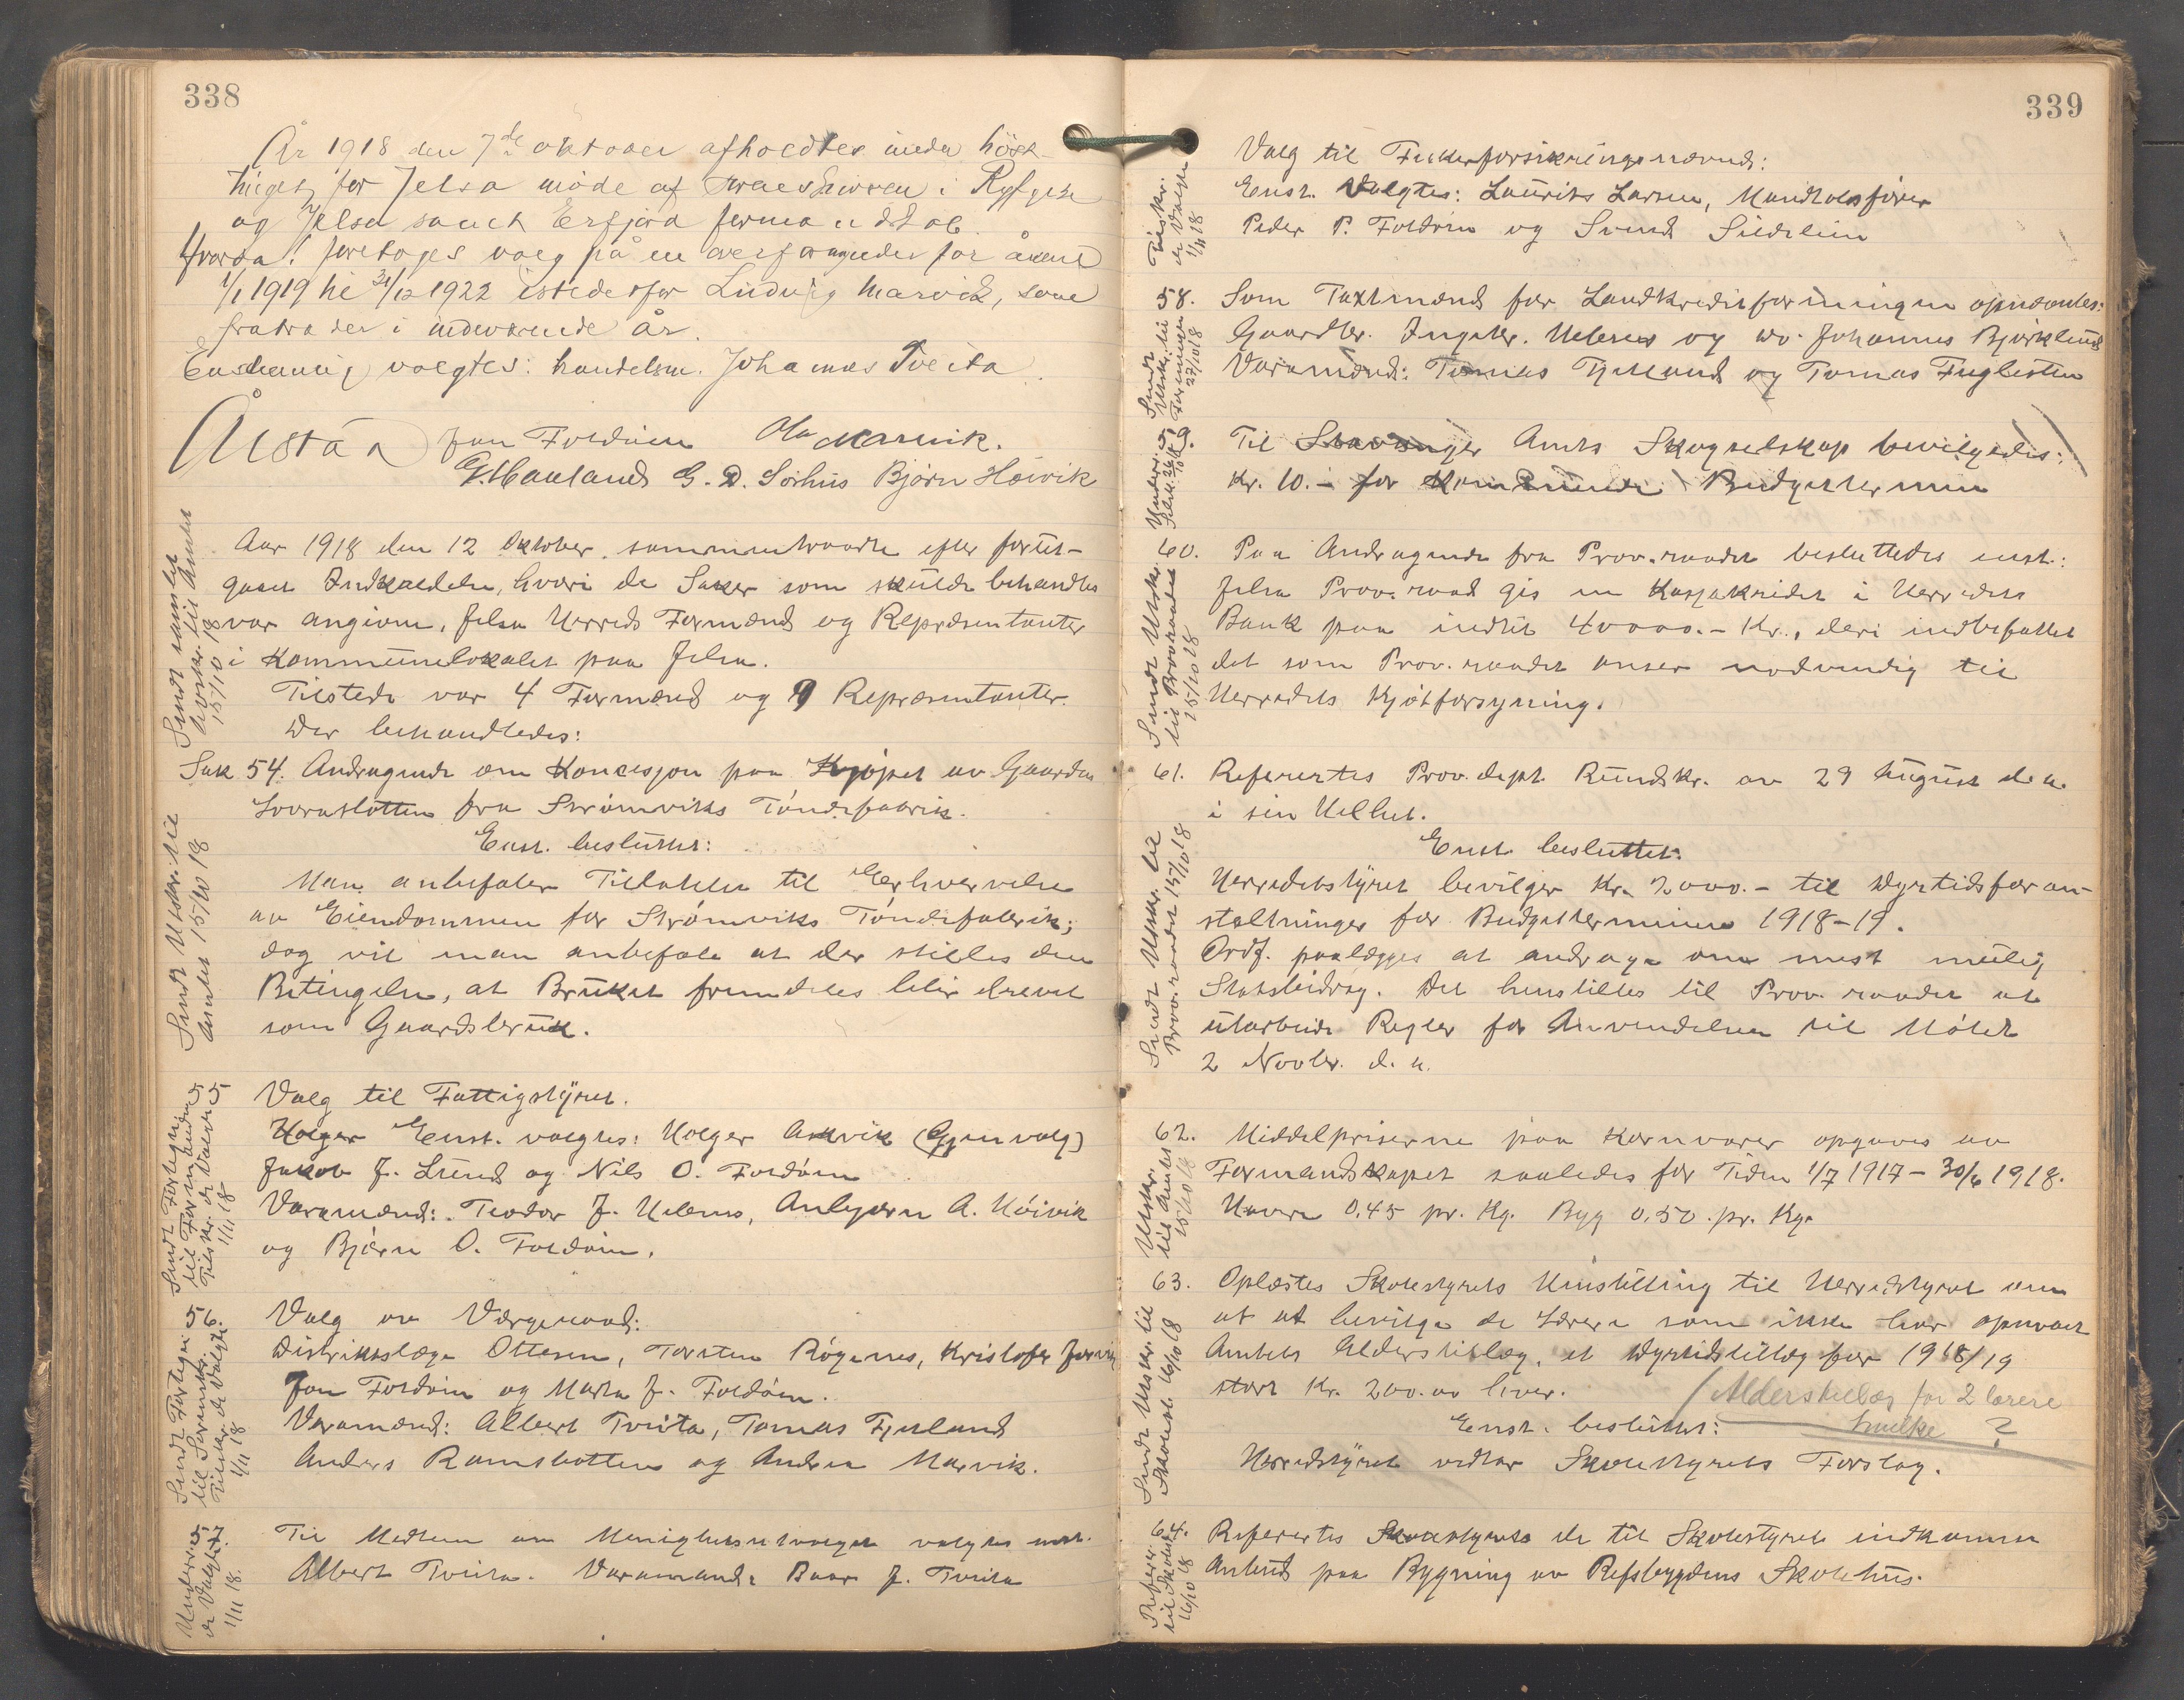 338
År 1918 den 7de oktober afholdtes under høst-
tinget for Jelsa møde af i Ryfylke
og Jelsa samt Erfjord formandskab
Hvorda! foretoges valg på en for årene
1/1 1919 til 31/12 1922 istedetfor Ludvig Marvik, som
fratræder i indeværende år.
Enstemmig valgtes: handelsm. Johannes Tveita
Østen Jon Foldøien Ola Marvik.
G. Hauland G. D. Sørhus Bjørn Høivik
Sendt samlet
Avskr. til Amtet
15/10 18
Aar 1918 den 12 Oktober sammentraadte efter forut-
gaaet Indkaldelse, hvori de Saker som skulde behandles
var angivne, Jelsa Herreds Formænd og Repræsentanter
i Kommunelokalet paa Jelsa.
Tilstede var 4 Formænd og 9 Repræsentanter.
Der behandledes:
Sendt Utskr. til
Amtet 15/10 18
Sak 54. Andragende om Koncesjon paa Kjøpet av Gaarden
fra Strømviks Tøndefabrik.
Enst. besluttet:
Man anbefaler Tilladelse til Erhvervelse
av Eiendommen for Strømviks Tøndefabrik;
dog vil man anbefale at der stilles den
Betingelse, at Bruket fremdeles blir drevet
som Gaardsbruk.
Sendt Fortegn.
til Formanden
Tilskr. de Valgte
1/11 18
55
Valg til Fattigstyret.
Holger Enst. valgtes: Holger Askvik (Gjenvalg)
Jakob J. Lund og Nils O. Foldøen
Varamænd: Teodor J. Helenes, Anbjørn A. Høivik
og Bjørn O. Foldøin.
Sendt Fortegn.
til Sorenskr.
Tilskr. de Valgte
1/11 18
56.
Valg av Værgeraad:
Distriktslæge Ottesen, Torsten Røgenes, Kristofer
Jon Foldøin og Marta J. Foldøen.
Varamænd: Albert Tveita, Tomas Fjelland
Anders Ramsbotten og Andrea Marvik.
Underr.
de Valgte
1/11 18.
57
Til Medlem av Menighetsutvalget valgtes enst.
Albert Tveita. Varamand: Baar J. Tveita
339
Tilskr.
de Valgte
1/11 18
Valg til Feukerforsikringsnævnd:
Enst. Valgtes: Laurits Larsen, Mundtolsfører
Peder P. Foldøin og Svend
Sendt
Utskr. til
Foreningen
27/10 18
58. Som Taxtmænd for Landkreditforeningen opnævntes:
Gaardbr. Ingebr. Helenes og do. Johannes Bjørklund
Varamænd: Tomas Fjelland og Tomas Fuglesten
59.
Til Stavanger Amts Skogselskap bevilgedes:
Kr. 10.- for Kommende Budgettermin
Sendt Utskr.
til Provraadet
15/10 18
60. Paa Andragende fra Prov.raadet besluttedes enst.:
Jelsa Prov.raad gis en Kassakredit i Herredets
Bank paa indtil 40000.- Kr., deri indbefattet
det som Prov.raadet anser nødvendig til
Herredets Kjøtforsyning.
Sendt Utskr. til
Prov.raadet 15/10 18
61. Refertes Prov.dept. Rundskr. av 29 August d.a.
i sin Helhet.
Enst. besluttet:
Herredstyret bevilger Kr. 2000.- til Dyrtidsforan-
staltninger for Budgetterminen 1918-19.
Ordf. paalægges at andrage om mest mulig
Statsbidrag. Det henstilles til Prov.raadet at
utarbeide Regler for Anvendelsen til Møtet
2 Novbr. d.a.
Utskr.
til Amtet
15/10 18
62. Middelpriserne paa Kornvarer opgaves av
Formandskapet saaledes for Tiden 1/7 1917 - 30/6 1918.
Havre 0,45 pr. Kg. Byg 0,50 pr. Kg.
Sendt Utskr. til
Skolest. 16/10 18
63. Oplæstes Skolestyrets Henstilling til Herredstyret om
at at bevilge de Lærere som ikke har opnaaet
Amtets Alderstillæg, et Dyrtidstillæg for 1918/19
stort Kr. 200.00 hver.
Alderstillæg for 2 lærere
hvilke ?
Enst. besluttet:
Herredstyret vedtar Skolestyrets Forslag.
Referer.
til Skolest.
16/10 18
64. Refertes Skolestyrets de til Skolestyret indkomne
Anbud paa Bygning av Refsbygdens Skolehus.